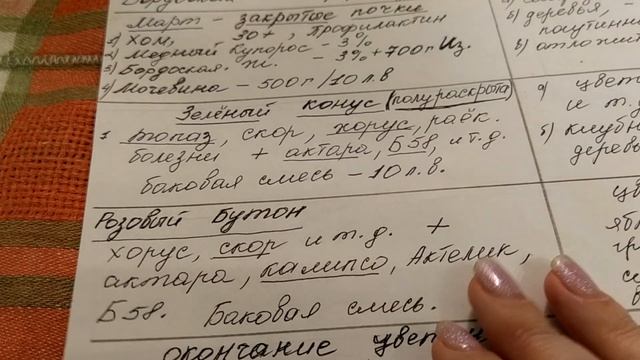 Март – закрытые почки
1) ХОМ, 30+, Профилактин
2) Медный купорос – 3%
3) Бордоская ж. – 3% + 700г Из.
4) Мочевина – 500г/10л.в
Зелёный конус (полураскрыта)
топаз, скор, хорус, раёк.
болезни + актара, Б58, и т.д.
баковая смесь – 10л.в.
Розовый Бутон
хорус, скор и т.д. +
актара, калипсо, Актелик,
Б58. Баковая смесь.
окончание
б) деревья, –
а) цвет
и т.
б) клубн
дерев